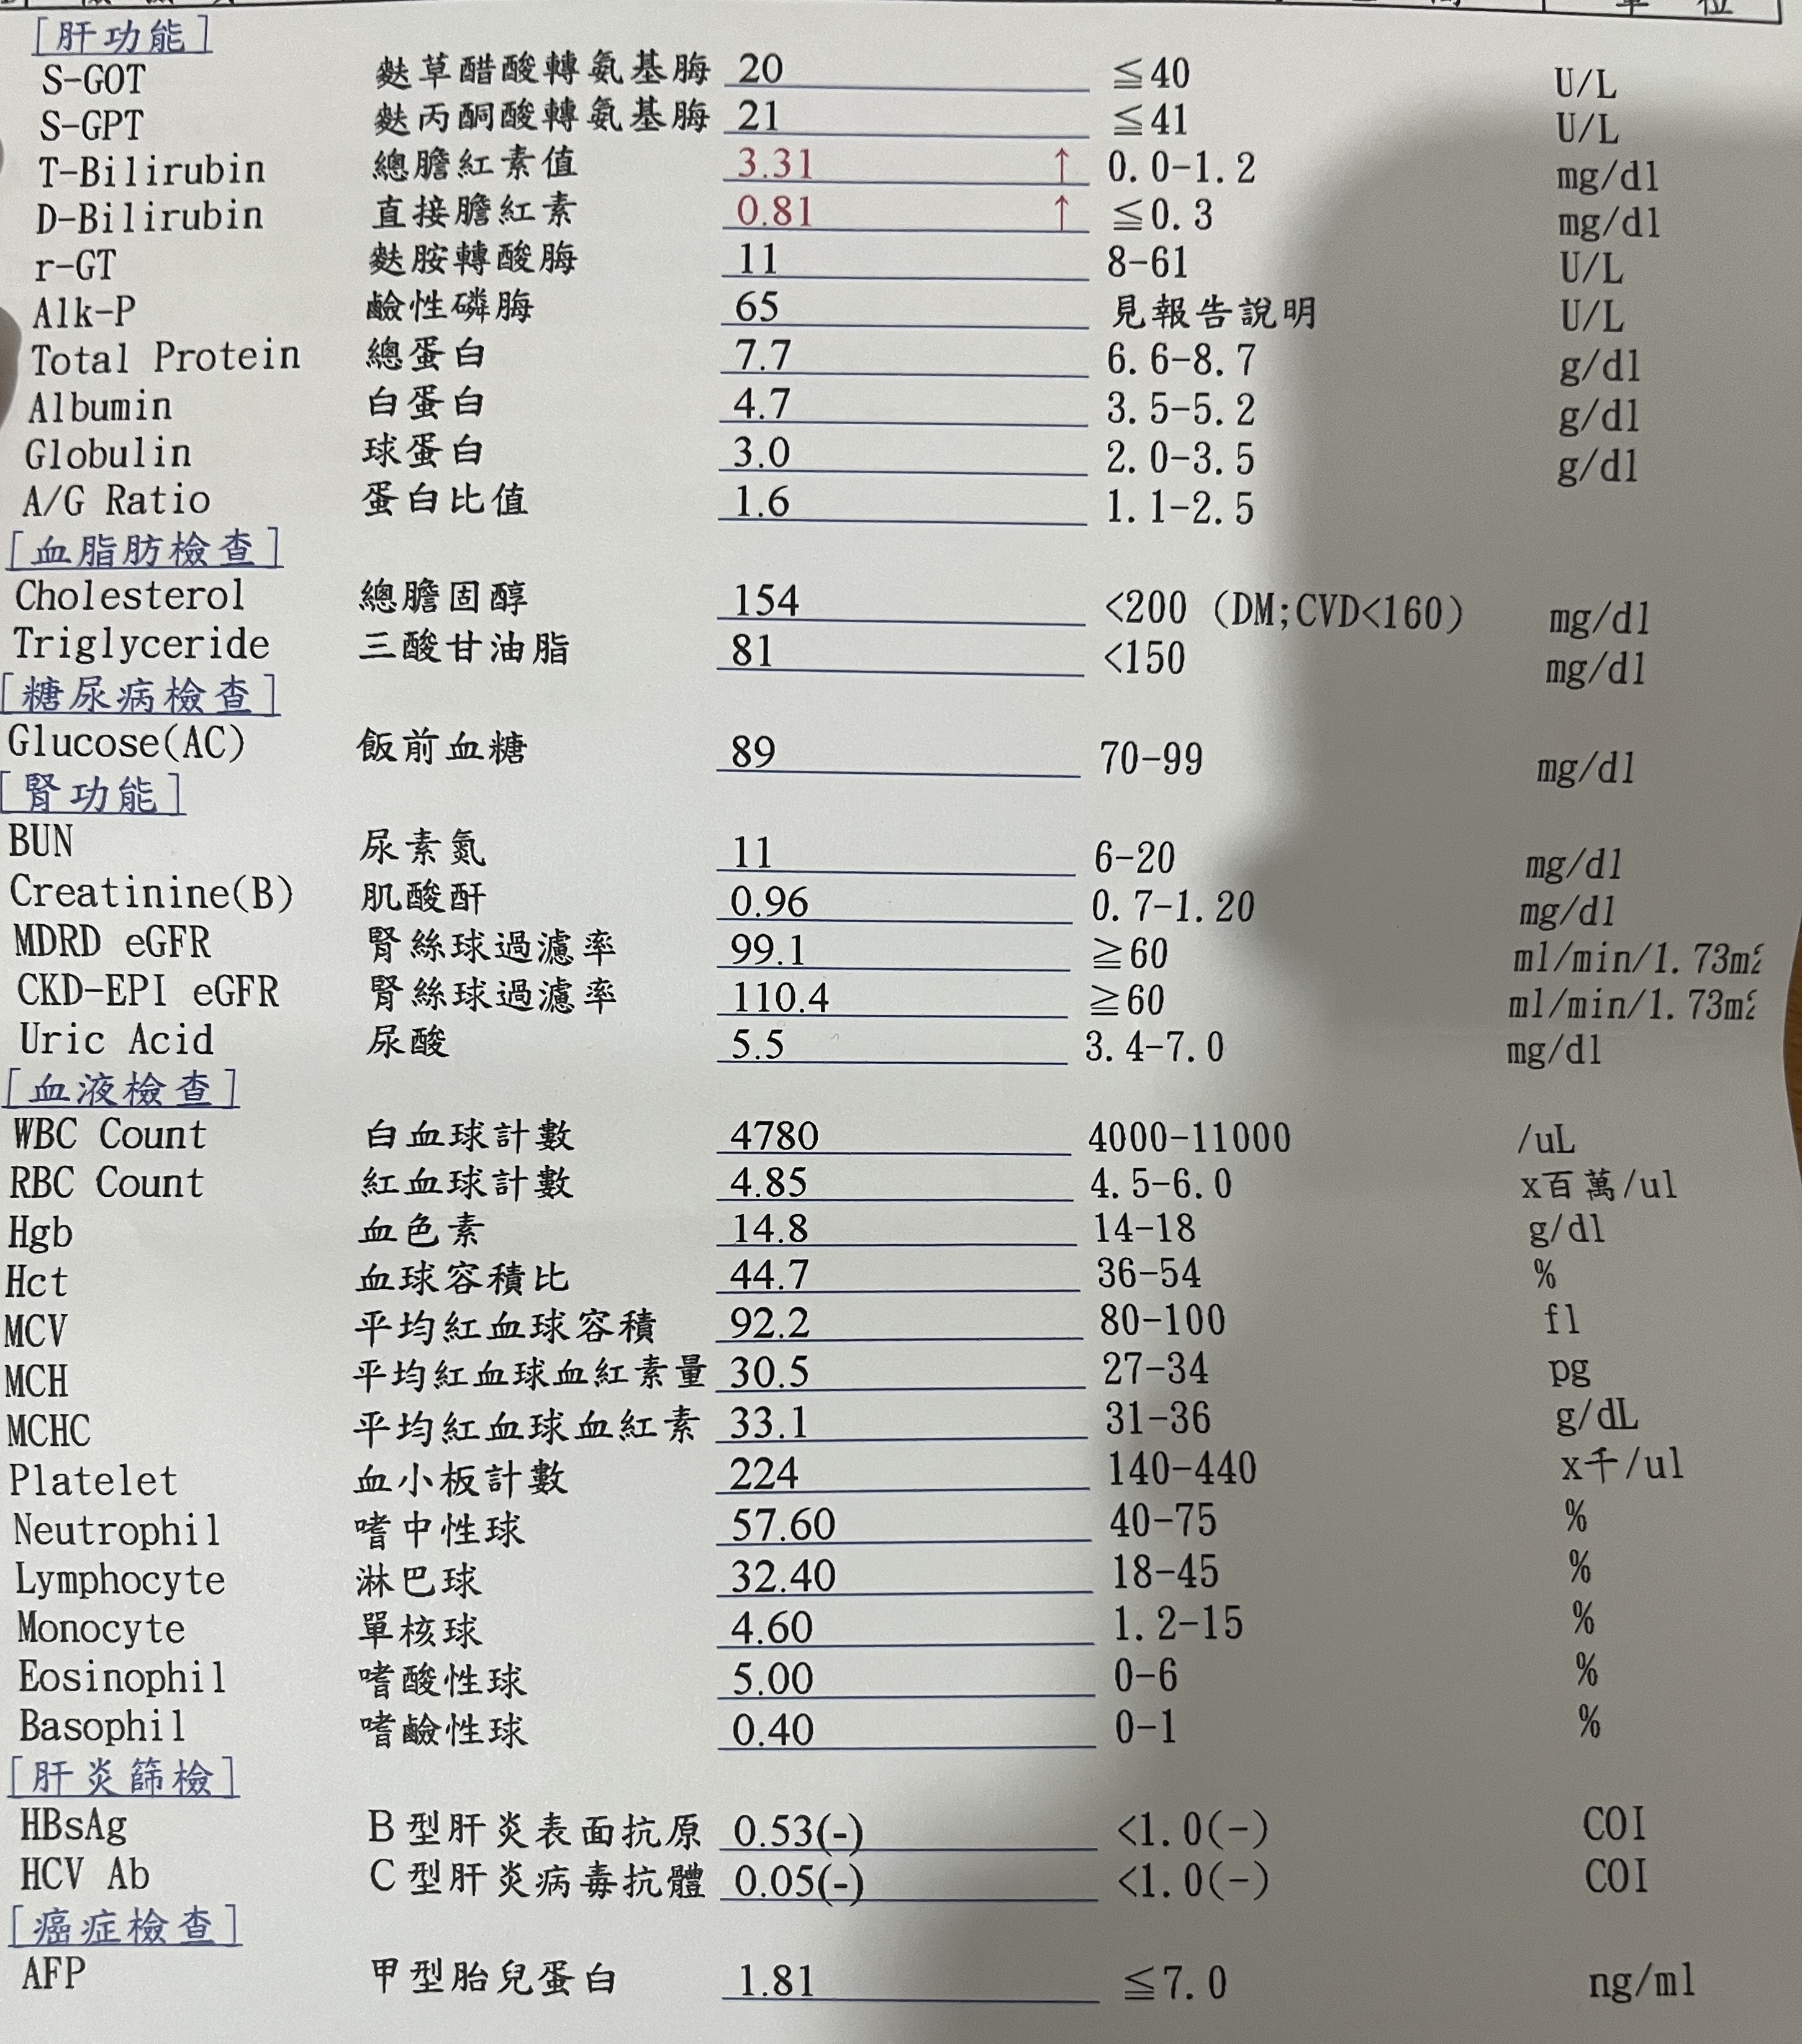 單 位
[肝功能]
S-GOT 麩草醋酸轉氨基脢 20 ≦40 U/L
S-GPT 麩丙酮酸轉氨基脢 21 ≦41 U/L
T-Bilirubin 總膽紅素值 3.31 ↑ 0.0-1.2 mg/dl
D-Bilirubin 直接膽紅素 0.81 ↑ ≦0.3 mg/dl
r-GT 麩胺轉酸脢 11 8-61 U/L
Alk-P 鹼性磷脢 65 見報告說明 U/L
Total Protein 總蛋白 7.7 6.6-8.7 g/dl
Albumin 白蛋白 4.7 3.5-5.2 g/dl
Globulin 球蛋白 3.0 2.0-3.5 g/dl
A/G Ratio 蛋白比值 1.6 1.1-2.5
[血脂肪檢查]
Cholesterol 總膽固醇 154 <200 (DM;CVD<160) mg/dl
Triglyceride 三酸甘油脂 81 <150 mg/dl
[糖尿病檢查]
Glucose(AC) 飯前血糖 89 70-99 mg/dl
[腎功能]
BUN 尿素氮 11 6-20 mg/dl
Creatinine(B) 肌酸酐 0.96 0.7-1.20 mg/dl
MDRD eGFR 腎絲球過濾率 99.1 ≧60 ml/min/1.73m2
CKD-EPI eGFR 腎絲球過濾率 110.4 ≧60 ml/min/1.73m2
Uric Acid 尿酸 5.5 3.4-7.0 mg/dl
[血液檢查]
WBC Count 白血球計數 4780 4000-11000 /uL
RBC Count 紅血球計數 4.85 4.5-6.0 x百萬/ul
Hgb 血色素 14.8 14-18 g/dl
Hct 血球容積比 44.7 36-54 %
MCV 平均紅血球容積 92.2 80-100 fl
MCH 平均紅血球血紅素量 30.5 27-34 pg
MCHC 平均紅血球血紅素 33.1 31-36 g/dL
Platelet 血小板計數 224 140-440 x千/ul
Neutrophil 嗜中性球 57.60 40-75 %
Lymphocyte 淋巴球 32.40 18-45 %
Monocyte 單核球 4.60 1.2-15 %
Eosinophil 嗜酸性球 5.00 0-6 %
Basophil 嗜鹼性球 0.40 0-1 %
[肝炎篩檢]
HBsAg B型肝炎表面抗原 0.53(-) <1.0(-) COI
HCV Ab C型肝炎病毒抗體 0.05(-) <1.0(-) COI
[癌症檢查]
AFP 甲型胎兒蛋白 1.81 ≦7.0 ng/ml